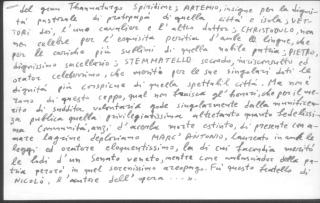 del gran Thaumaturgo Spiridione; ARTEMIO, insigne per la digni-
tà pastorale di protopapà di quella città e isola; VET-
TORE dei, l'uno cavaliere e l'altro dottore; CHRISTODULO, non
men celebre per l'esquisita peritia d'ambe le lingue, che
per le cariche più sublimi di quella nobile patria; PIETRO,
dignissimo cancelliero; STEMMATELLO secondo, iurisconsulto ed
orator celeberrimo, che meritò per le sue singolari doti la
dignità più conspicua di quella spettabil città. Ma non è
ramo di questo ceppo, qual non trasuda gl'honori, che per il me-
rito di suddita volontaria gode singolarmente dalla munificen-
za publica quella privilegiatissima altretanto quanto fedelissi-
ma Communità, anzi, d'acerba morte estinto, di presente con a-
mare lagrime deploriamo MARC'ANTONIO, laureato in ambe le
leggi ed oratore eloquentissimo, la di cui facondia meritò
le laudi d'un Senato veneto, mentre come ambasciador della pa-
tria perorò in quel serenissimo areopago. Fù questo fratello di
NICOLÒ, l'autore dell'opera ... ».